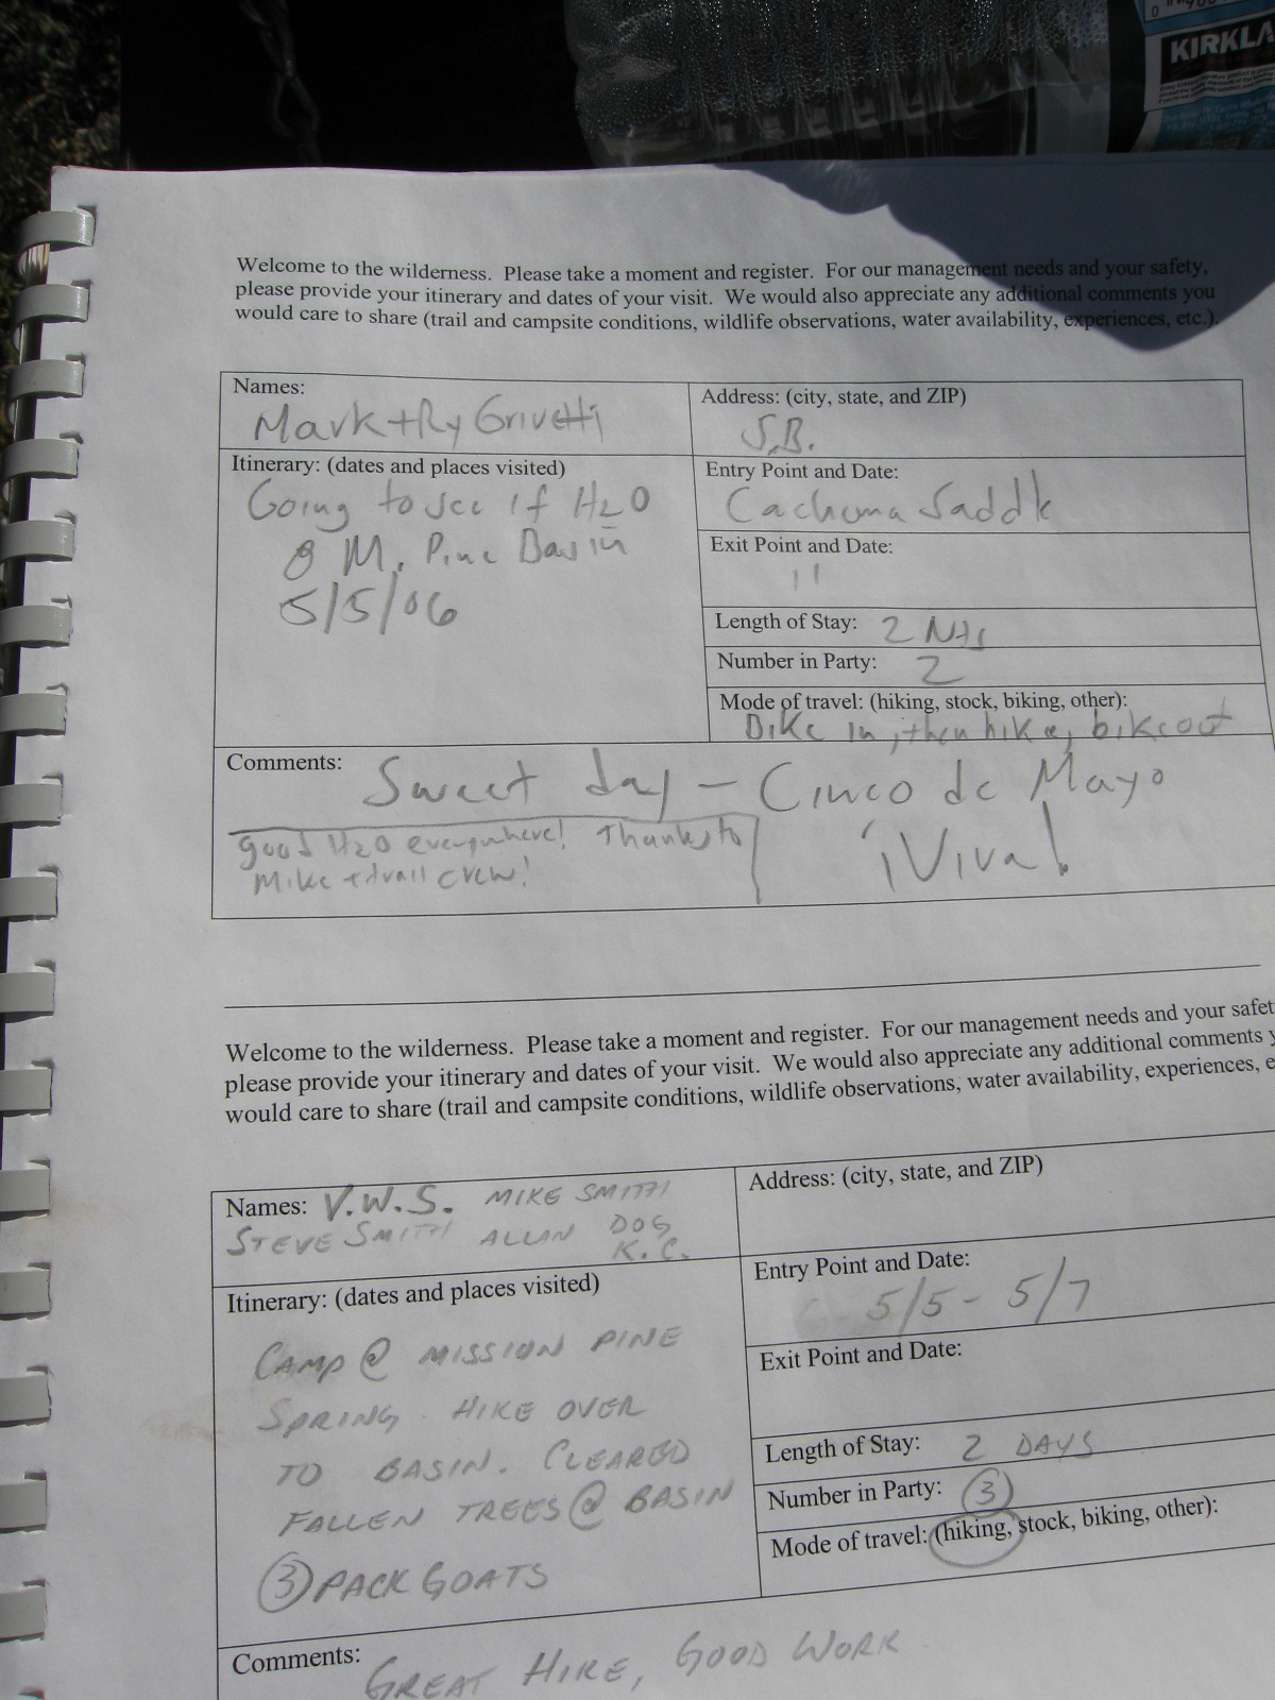 KIRKLA
Welcome to the wilderness. Please take a moment and register. For our management needs and your safety,
please provide your itinerary and dates of your visit. We would also appreciate any additional comments you
would care to share (trail and campsite conditions, wildlife observations, water availability, experiences, etc.).
Names:
Mark + Ry Grivetti
Address: (city, state, and ZIP)
S.B.
Itinerary: (dates and places visited)
Going to see if H2O
@ M. Pine Basin
5/5/06
Entry Point and Date:
Cachuma Saddle
Exit Point and Date:
"
Length of Stay: 2 Nts
Number in Party: 2
Mode of travel: (hiking, stock, biking, other):
Bike in, then hike, bike out
Comments: Sweet day - Cinco de Mayo
¡Viva!
good H2O everywhere! Thanks to
Mike + trail crew!
Welcome to the wilderness. Please take a moment and register. For our management needs and your safet
please provide your itinerary and dates of your visit. We would also appreciate any additional comments y
would care to share (trail and campsite conditions, wildlife observations, water availability, experiences, e
Names: V.W.S. MIKE SMITH
STEVE SMITH ALLAN DOG
K.C.
Address: (city, state, and ZIP)
Itinerary: (dates and places visited)
CAMP @ MISSION PINE
SPRING. HIKE OVER
TO BASIN. CLEARED
FALLEN TREES @ BASIN
(3) PACK GOATS
Entry Point and Date:
5/5 - 5/7
Exit Point and Date:
Length of Stay: 2 DAYS
Number in Party: (3)
Mode of travel: (hiking, stock, biking, other):
Comments: GREAT HIKE, GOOD WORK